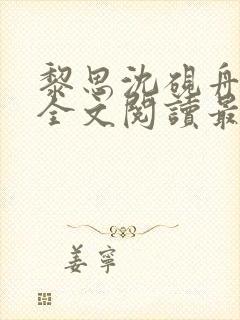 黎思沈硯舟
全文閱讀最
姜寧